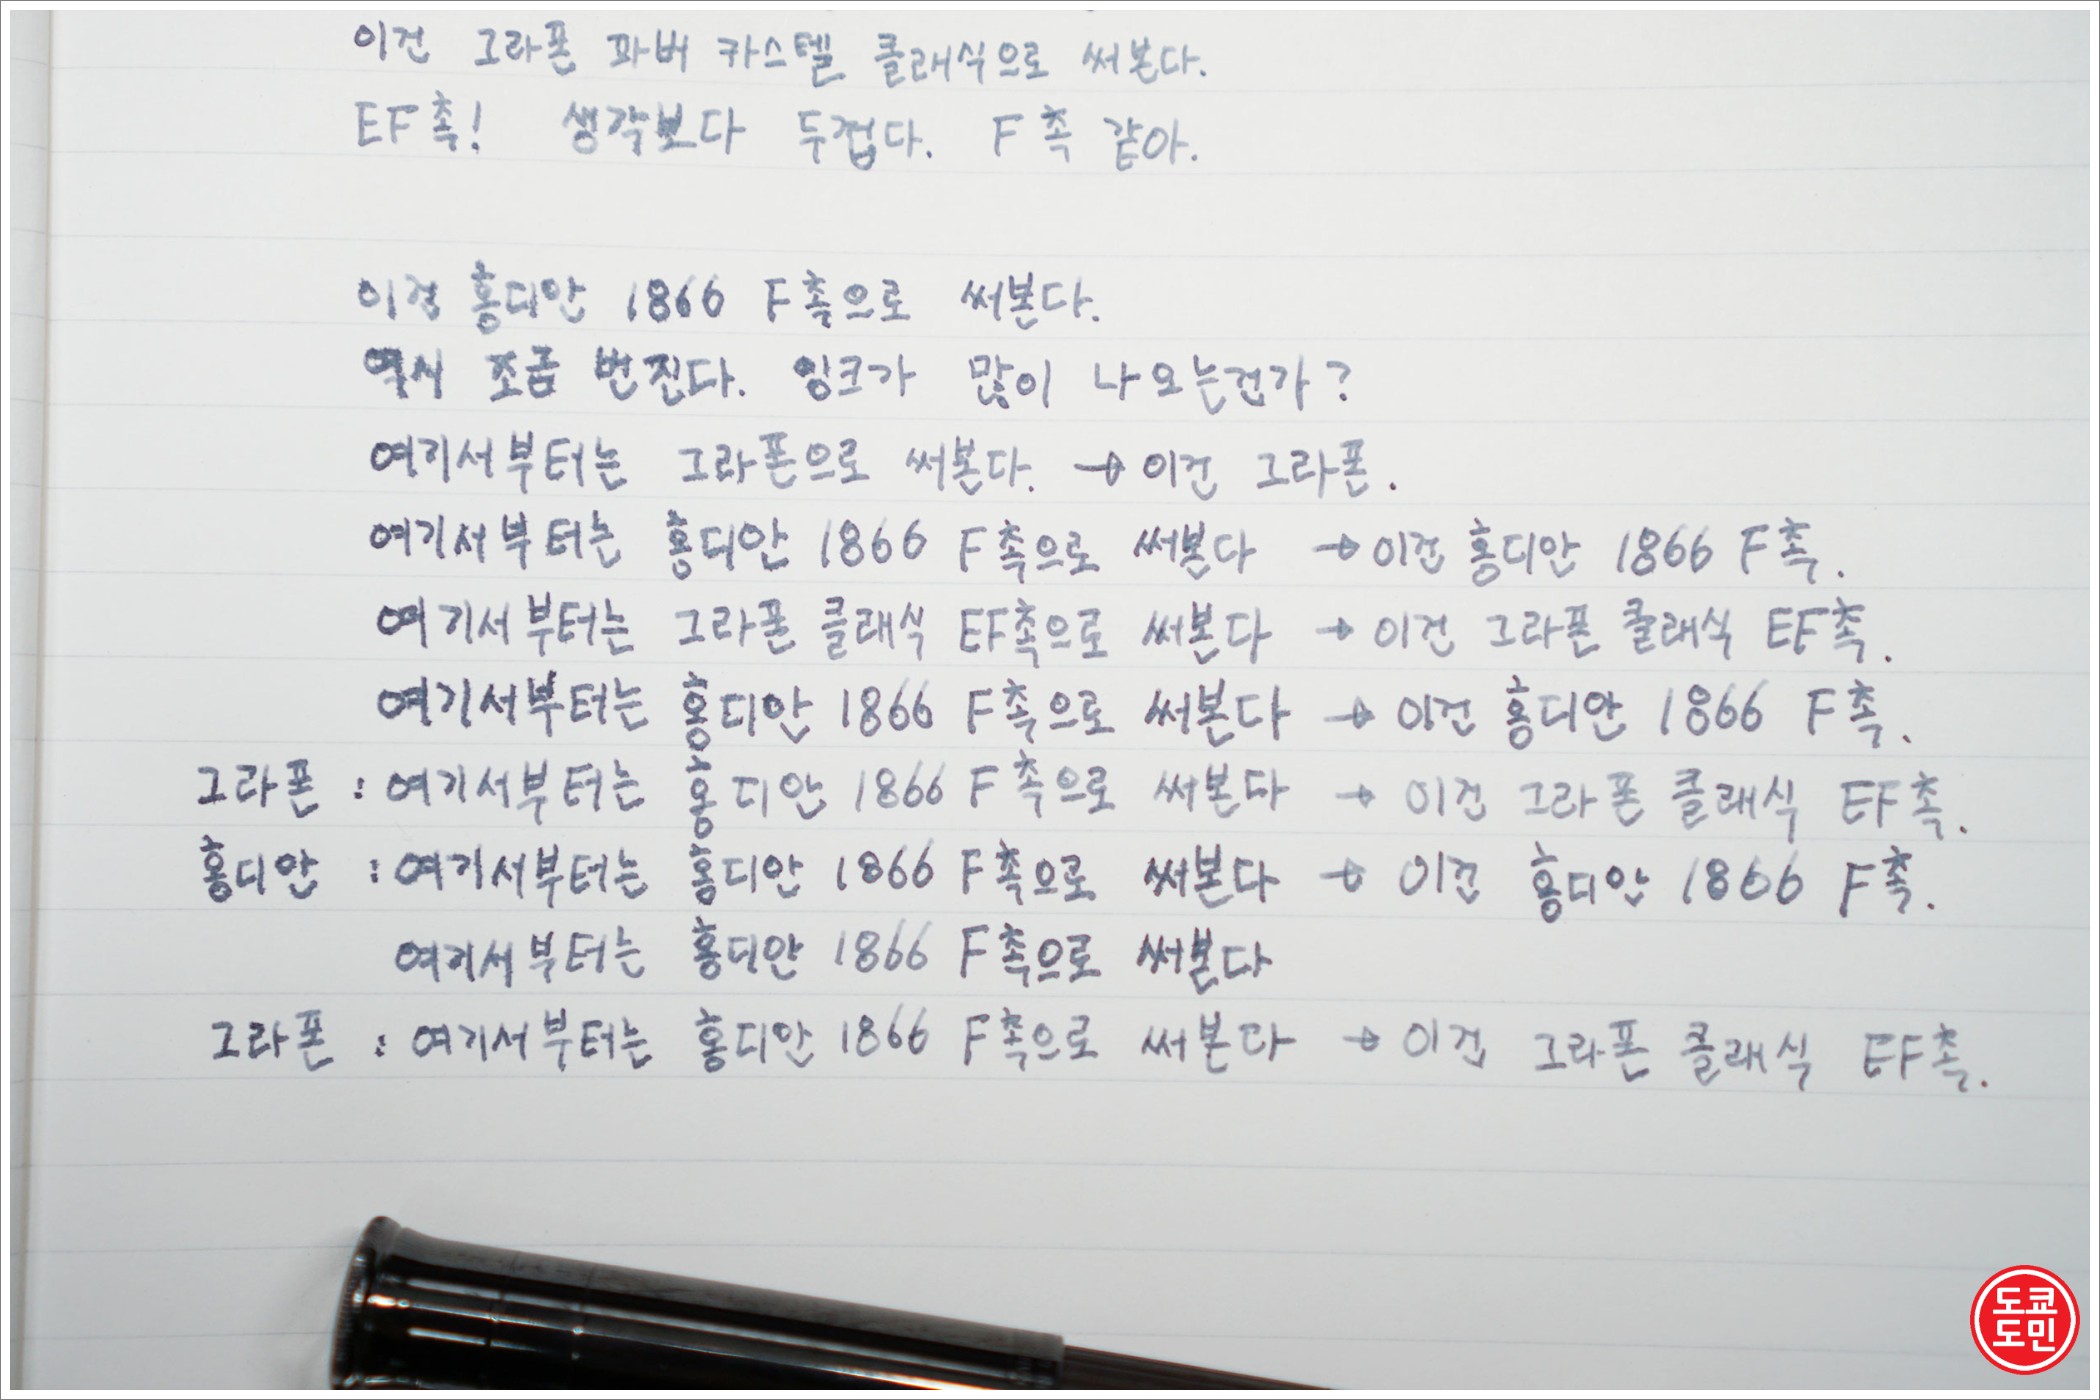 이건 그라폰 파버 카스텔 클래식으로 써본다.
EF촉! 생각보다 두껍다. F촉 같아.
이건 홍디안 1866 F촉으로 써본다.
역시 조금 번진다. 잉크가 많이 나오는건가?
여기서부터는 그라폰으로 써본다. → 이건 그라폰.
여기서부터는 홍디안 1866 F촉으로 써본다 → 이건 홍디안 1866 F촉.
여기서부터는 그라폰 클래식 EF촉으로 써본다 → 이건 그라폰 클래식 EF촉.
여기서부터는 홍디안 1866 F촉으로 써본다 → 이건 홍디안 1866 F촉.
그라폰 : 여기서부터는 홍디안 1866 F촉으로 써본다 → 이건 그라폰 클래식 EF촉.
홍디안 : 여기서부터는 홍디안 1866 F촉으로 써본다 → 이건 홍디안 1866 F촉.
여기서부터는 홍디안 1866 F촉으로 써본다
그라폰 : 여기서부터는 홍디안 1866 F촉으로 써본다 → 이건 그라폰 클래식 EF촉.
도쿄
도민